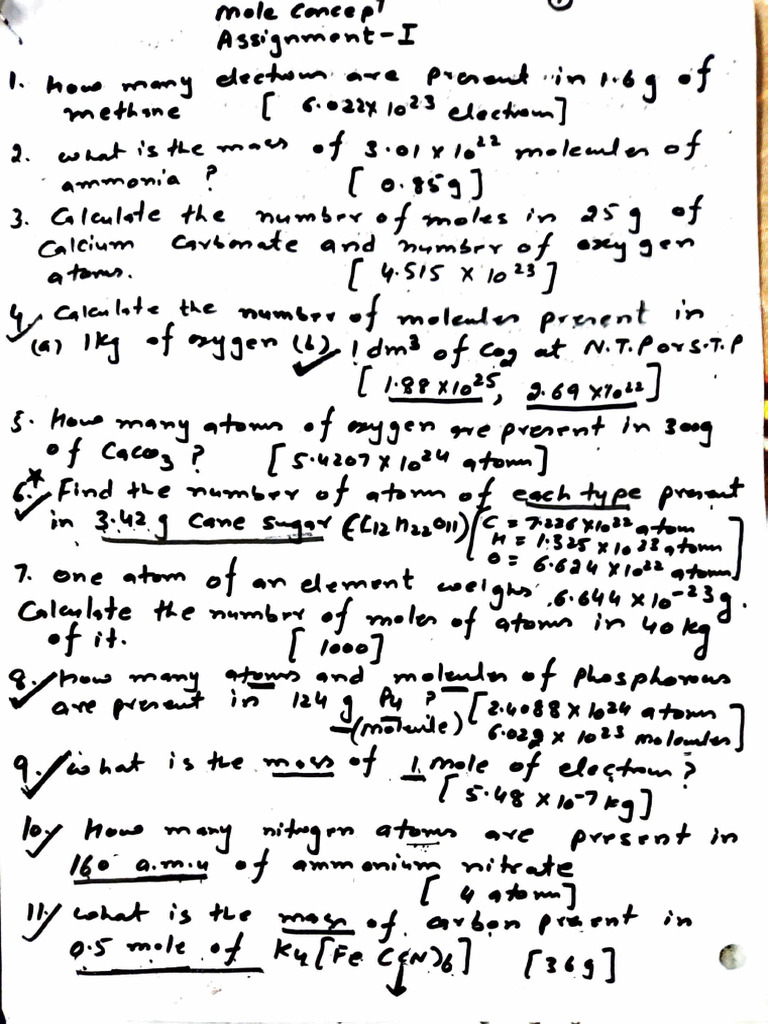 Mole Concept
Assignment-I
1. How many electrons are present in 1.6g of
methane [ 6.022×10²³ electrons]
2. What is the mass of 3.01×10²² molecules of
ammonia? [ 0.85g ]
3. Calculate the number of moles in 25 g of
Calcium Carbonate and number of oxygen
atoms. [ 4.515 × 10²³ ]
4. Calculate the number of molecules present in
(a) 1kg of oxygen (b) 1 dm³ of CO2 at N.T.P or S.T.P
[ 1.88×10²⁵, 2.69×10²² ]
5. How many atoms of oxygen are present in 300g
of CaCO3? [5.4207×10²⁴ atoms]
6.* Find the number of atoms of each type present
in 3.42 g Cane sugar (C12H22O11) [ C = 7.226×10²² atoms
H = 1.325×10²³ atoms
O = 6.624×10²² atoms ]
7. One atom of an element weighs 6.644×10⁻²³g.
Calculate the number of moles of atoms in 40 kg
of it. [ 1000]
8. How many atoms and molecules of phosphorous
are present in 124 g P4 ? [2.4088×10²⁴ atoms
(molecule) 6.022×10²³ molecules]
9. What is the mass of 1 mole of electrons?
[ 5.48×10⁻⁷ kg]
10. How many nitrogen atoms are present in
160 a.m.u of ammonium nitrate
[ 4 atoms]
11. What is the mass of carbon present in
0.5 mole of K4[Fe(CN)6] [36g]